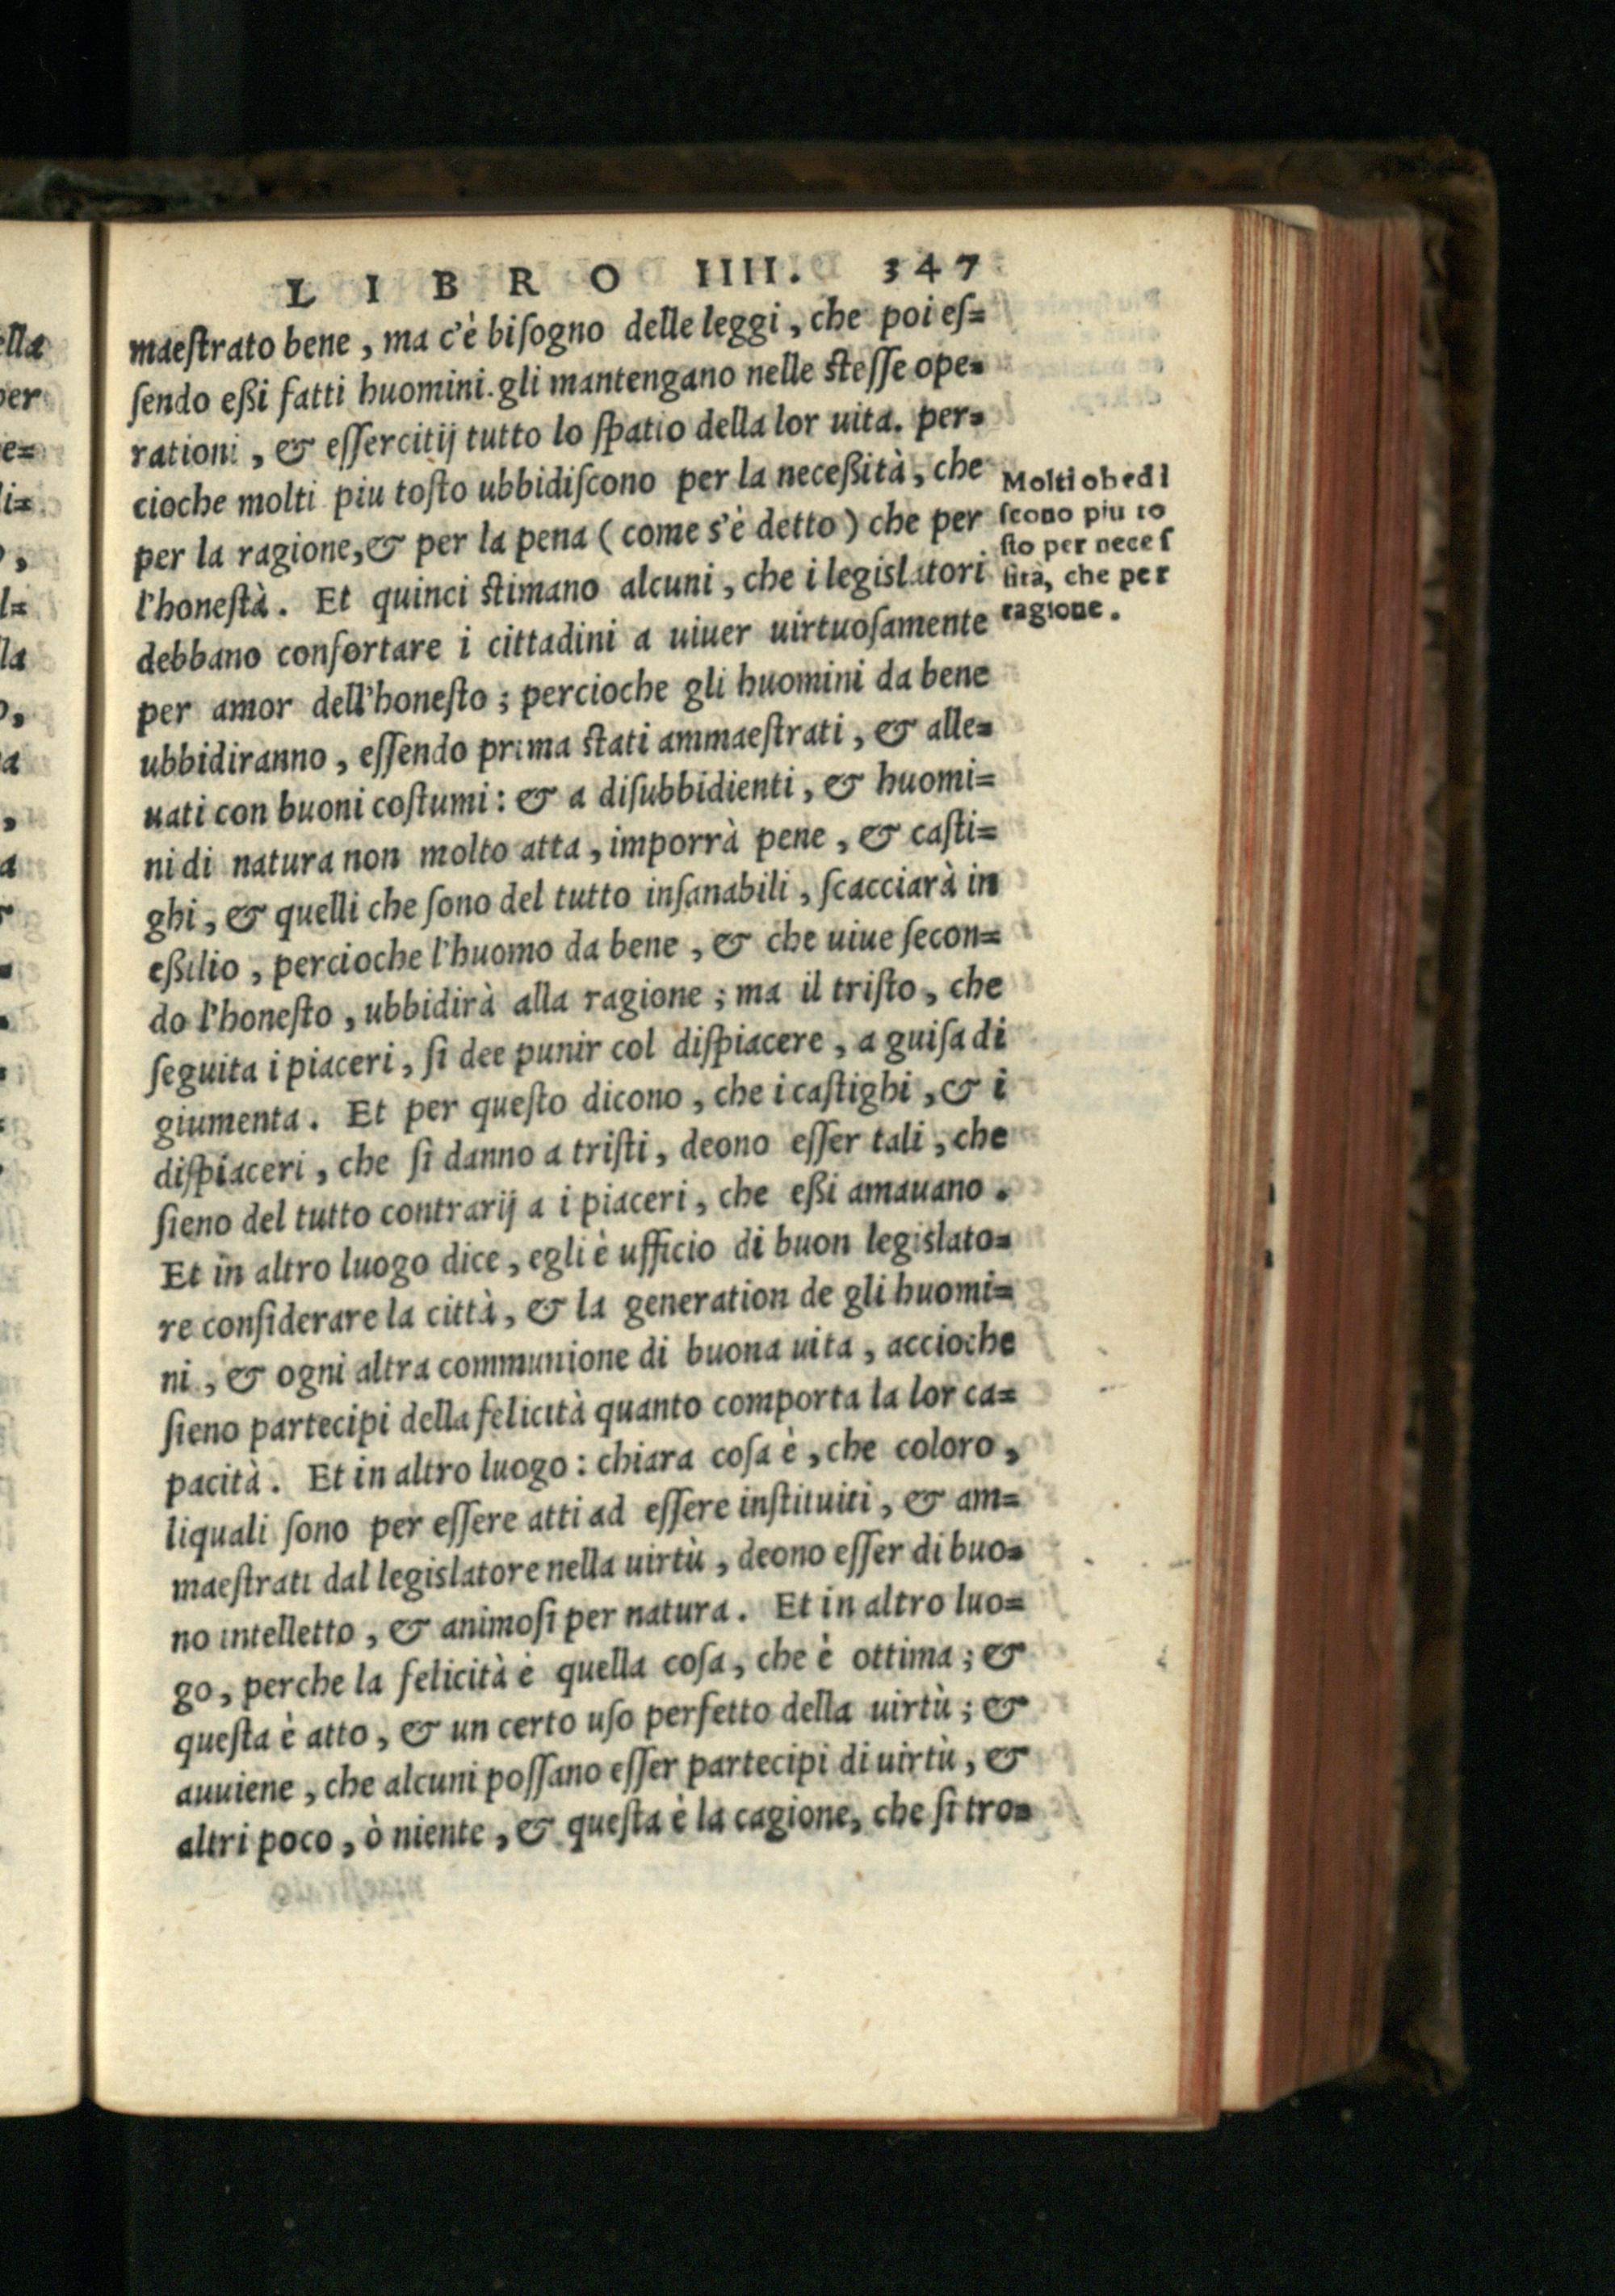 LIBRO IIII. 347
maeſtrato bene, ma c'è biſogno delle leggi, che poi eſ=
ſendo eßi fatti huomini. gli mantengano nelle steſſe ope=
rationi, & eſſercitij tutto lo ſpatio della lor uita. per=
cioche molti piu toſto ubbidiſcono per la neceßità, che
per la ragione, & per la pena (come s'è detto) che per
l'honeſtà. Et quinci stimano alcuni, che i legislatori
debbano confortare i cittadini a uiuer uirtuoſamente
per amor dell'honeſto; percioche gli huomini da bene
ubbidiranno, eſſendo prima stati ammaeſtrati, & alle=
uati con buoni coſtumi: & a diſubbidienti, & huomi=
ni di natura non molto atta, imporrà pene, & caſti=
ghi, & quelli che ſono del tutto inſanabili, ſcacciarà in
eßilio, percioche l'huomo da bene, & che uiue ſecon=
do l'honeſto, ubbidirà alla ragione; ma il triſto, che
ſeguita i piaceri, ſi dee punir col diſpiacere, a guiſa di
giumenta. Et per queſto dicono, che i caſtighi, & i
diſpiaceri, che ſi danno a triſti, deono eſſer tali, che
ſieno del tutto contrarij a i piaceri, che eßi amauano.
Et in altro luogo dice, egli è ufficio di buon legislato=
re conſiderare la città, & la generation de gli huomi=
ni, & ogni altra communione di buona uita, accioche
ſieno partecipi della felicità quanto comporta la lor ca=
pacità. Et in altro luogo: chiara coſa è, che coloro,
liquali ſono per eſſere atti ad eſſere inſtituiti, & am=
maeſtrati dal legislatore nella uirtù, deono eſſer di buo=
no intelletto, & animoſi per natura. Et in altro luo=
go, perche la felicità è quella coſa, che è ottima; &
queſta è atto, & un certo uſo perfetto della uirtù; &
auuiene, che alcuni poſſano eſſer partecipi di uirtù, &
altri poco, ò niente, & queſta è la cagione, che ſi tro=
Molti obedi
ſcono piu to
ſto per neceſ
ſità, che per
ragione.